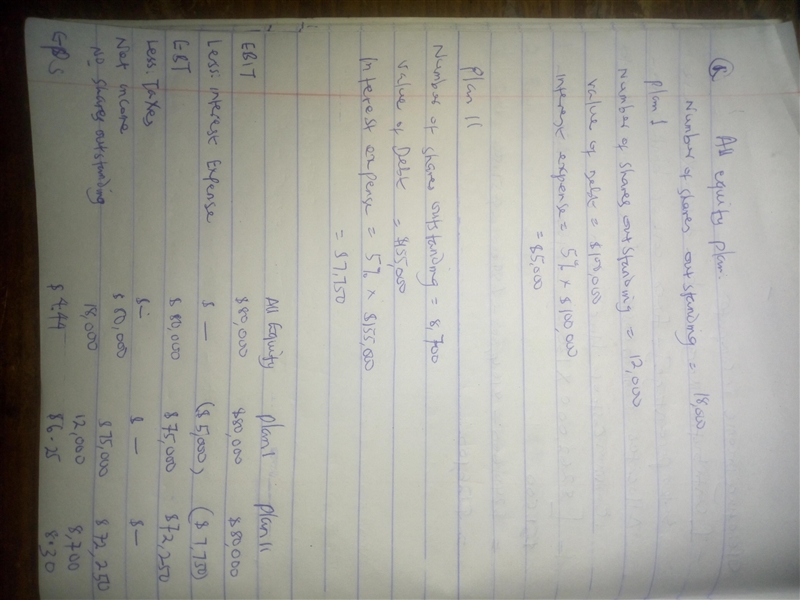 a All equity plan.
Number of shares outstanding = 18,000.
Plan I
Number of shares outstanding = 12,000
Value of Debt = $100,000
Interest expense = 5% × $100,000
= $5,000
Plan II
Number of shares outstanding = 8,700
Value of Debt = $155,000
Interest expense = 5% × $155,000
= $7,750
All Equity Plan I Plan II
EBIT $80,000 $80,000 $80,000
Less: interest Expense $ — ($5,000) ($7,750)
EBT $80,000 $75,000 $72,250
Less: Taxes $— $— $—
Net income $80,000 $75,000 $72,250
No shares outstanding 18,000 12,000 8,700
EPS $4.44 $6.25 8.30